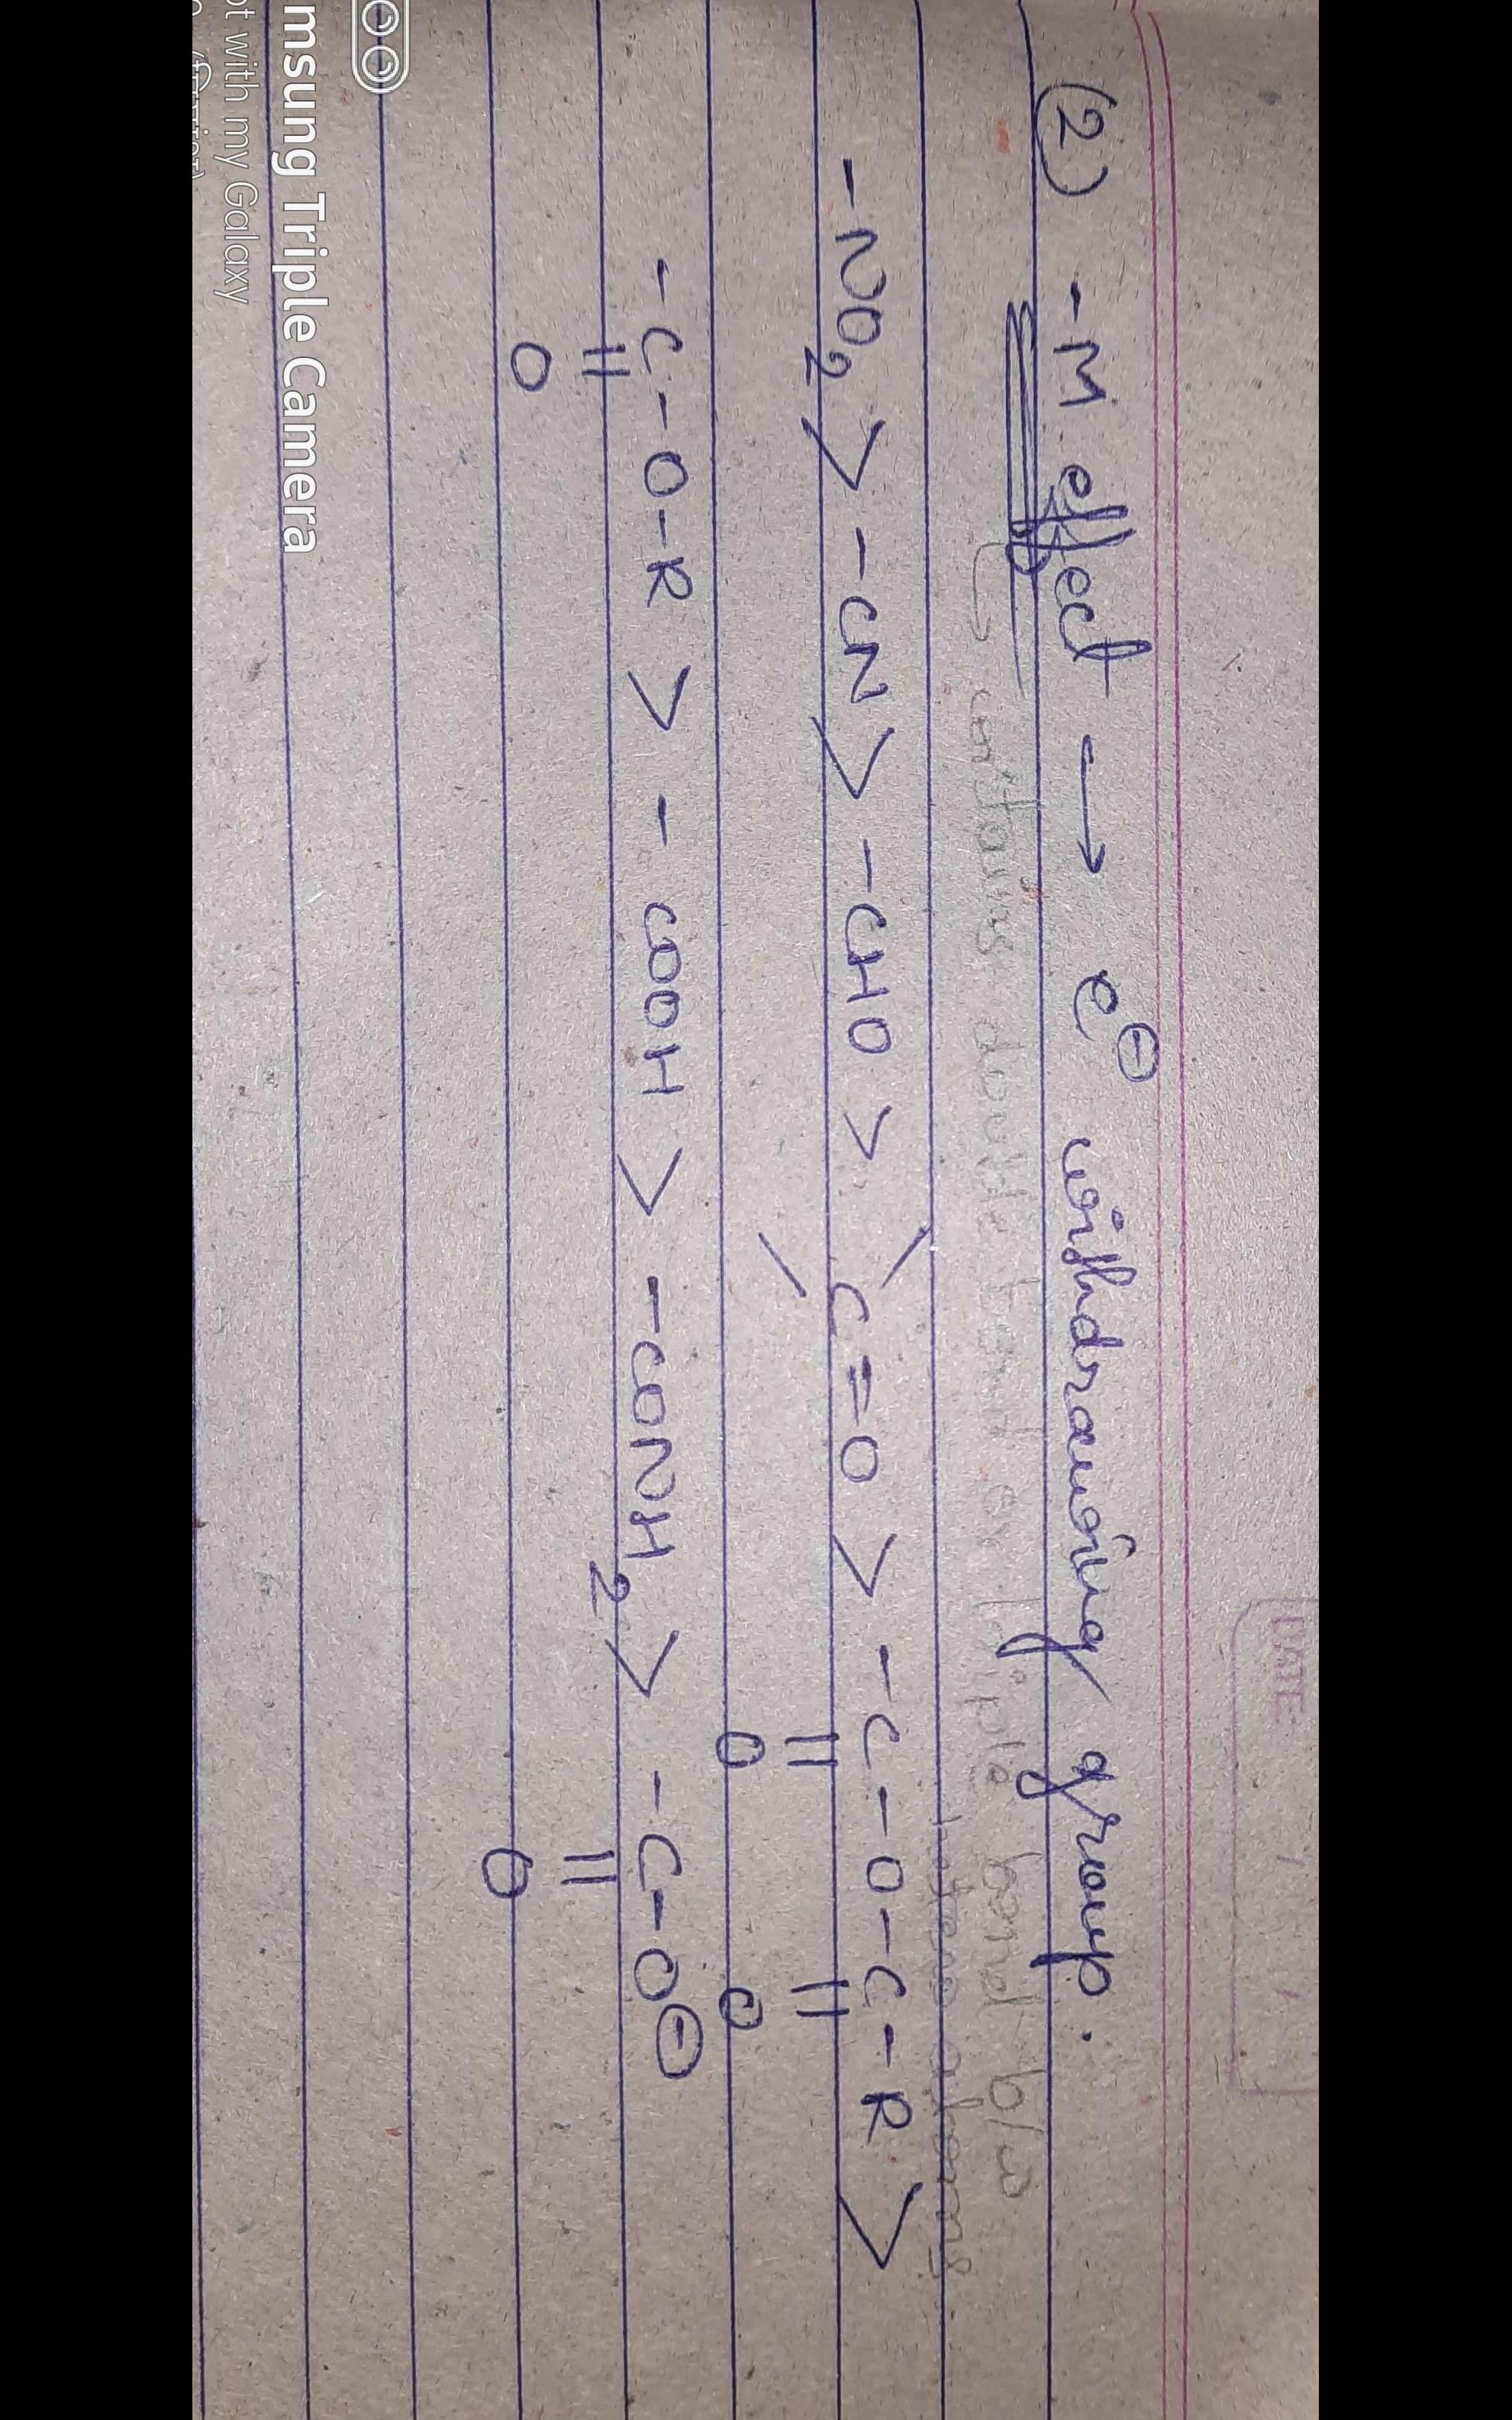 DATE
(2) -M effect → e⊖ withdrawing group.
↳ contains double bond or triple bond b/w
hetero atoms
-NO₂ > -CN > -CHO > C=O > -C-O-C-R >
O O
-C-O-R > -COOH > -CONH₂ > -C-O⊖
O O
msung Triple Camera
ot with my Galaxy